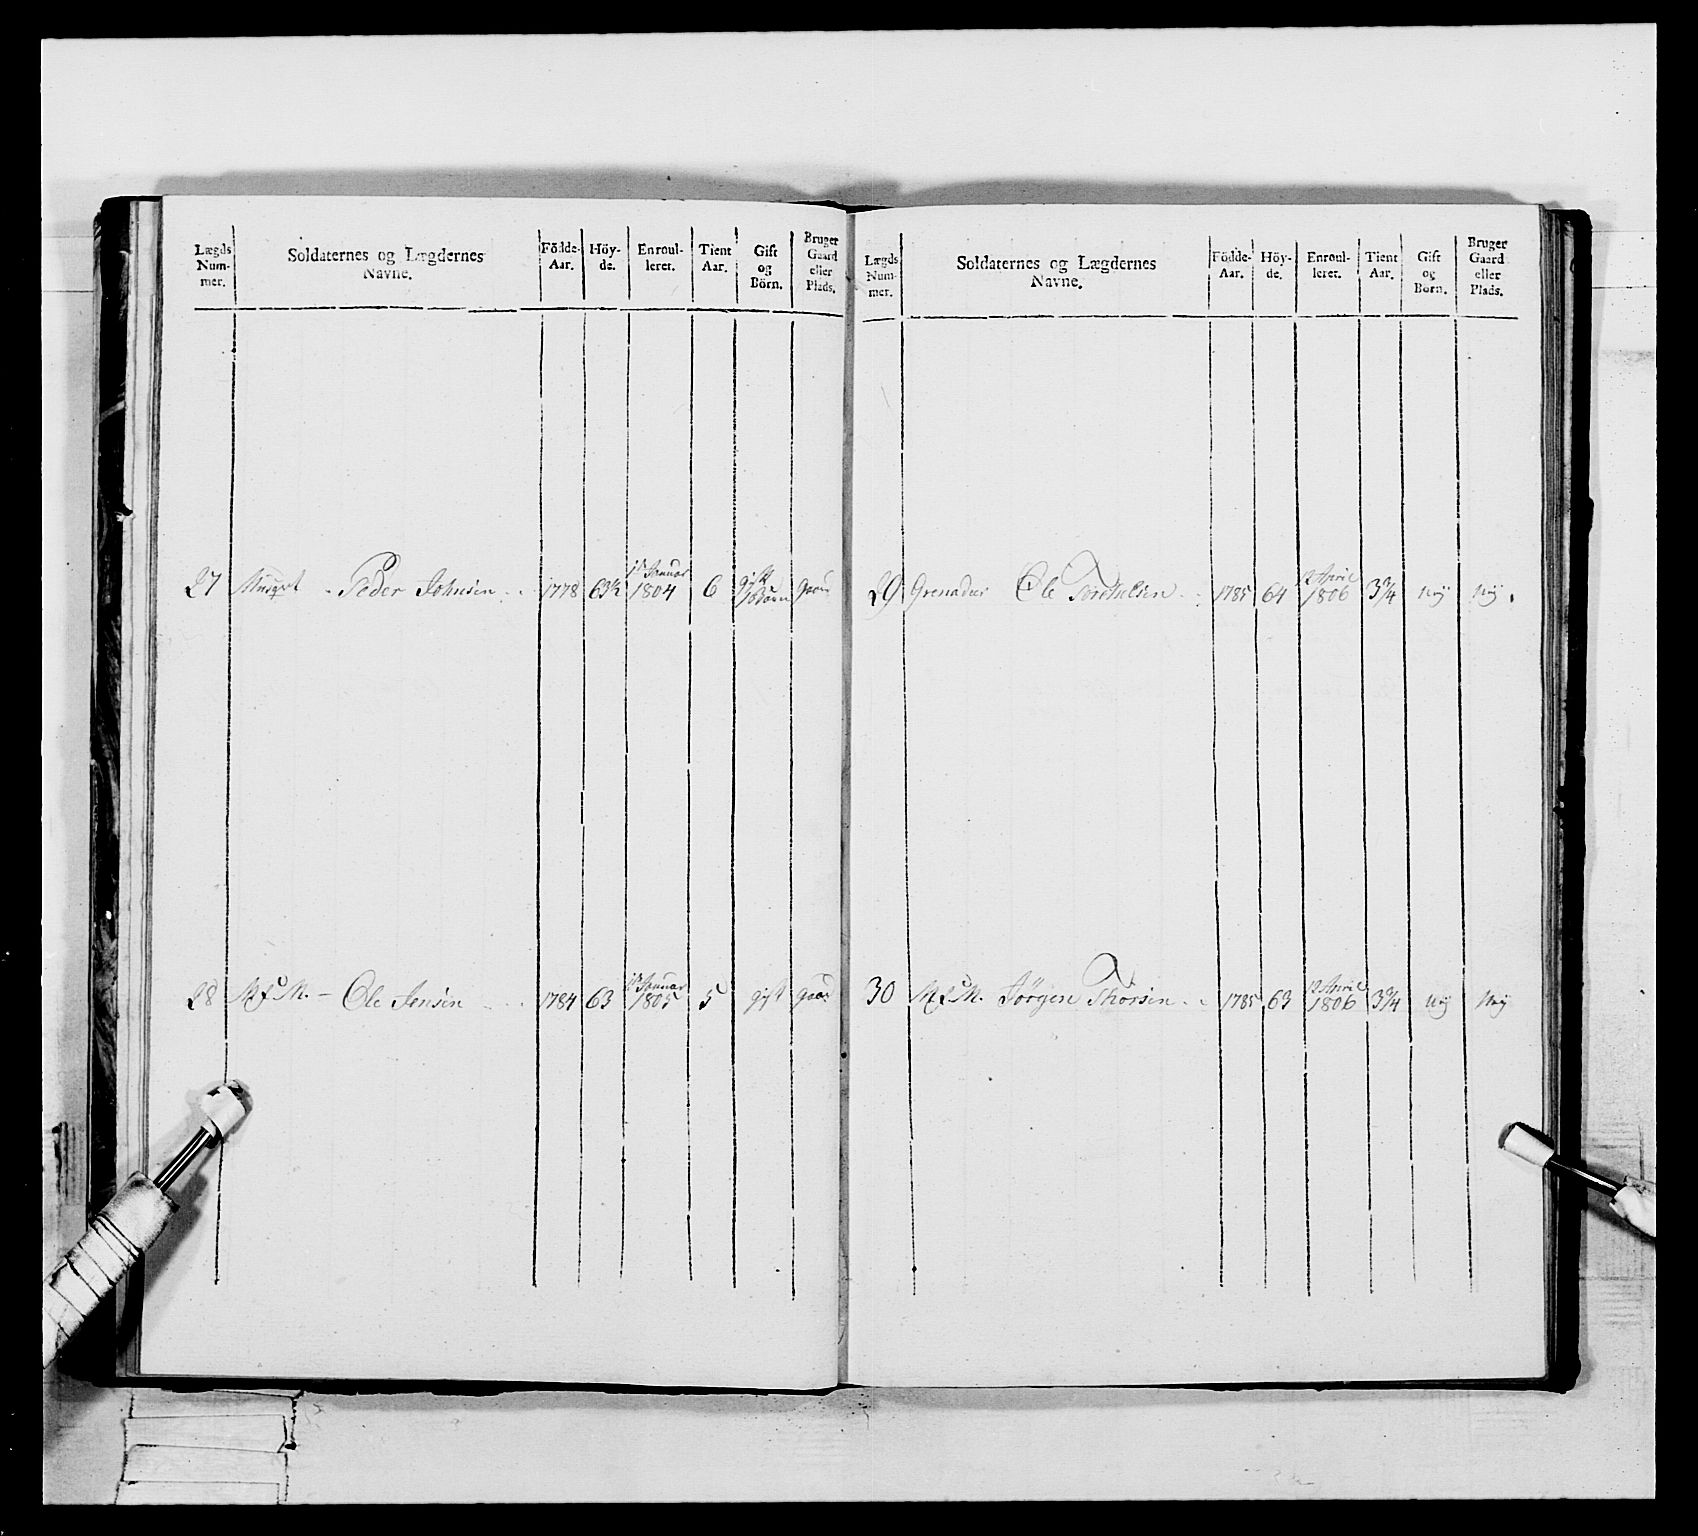 Lægds Num- mer. Soldaternes og Lægdernes Navne. Födde- Aar. Höy- de. Enroul- leret. Tient Aar. Gift og Börn. Bruger Gaard eller Plads.
27 Musqet - Peder Johnsen 1778 63½ Januar 1804 6 gift Börn gaard
28 - Ole Jensen 1784 63 Januar 1805 5 gift gaard
Lægds Num- mer. Soldaternes og Lægdernes Navne. Födde- Aar. Höy- de. Enroul- leret. Tient Aar. Gift og Born. Bruger Gaard eller Plads.
29 Grenadeer Ole 1785 64 12 April 1806 3¾ Nÿ Nÿ
30 Jörgen Thorsen 1785 63 12 April 1806 3¾ Nÿ Nÿ